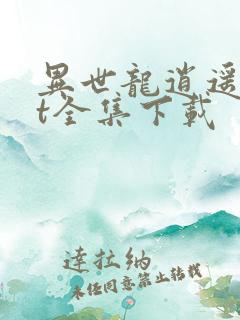 異世龍逍遥
t全集下載
達拉納
未經同意禁止轉載